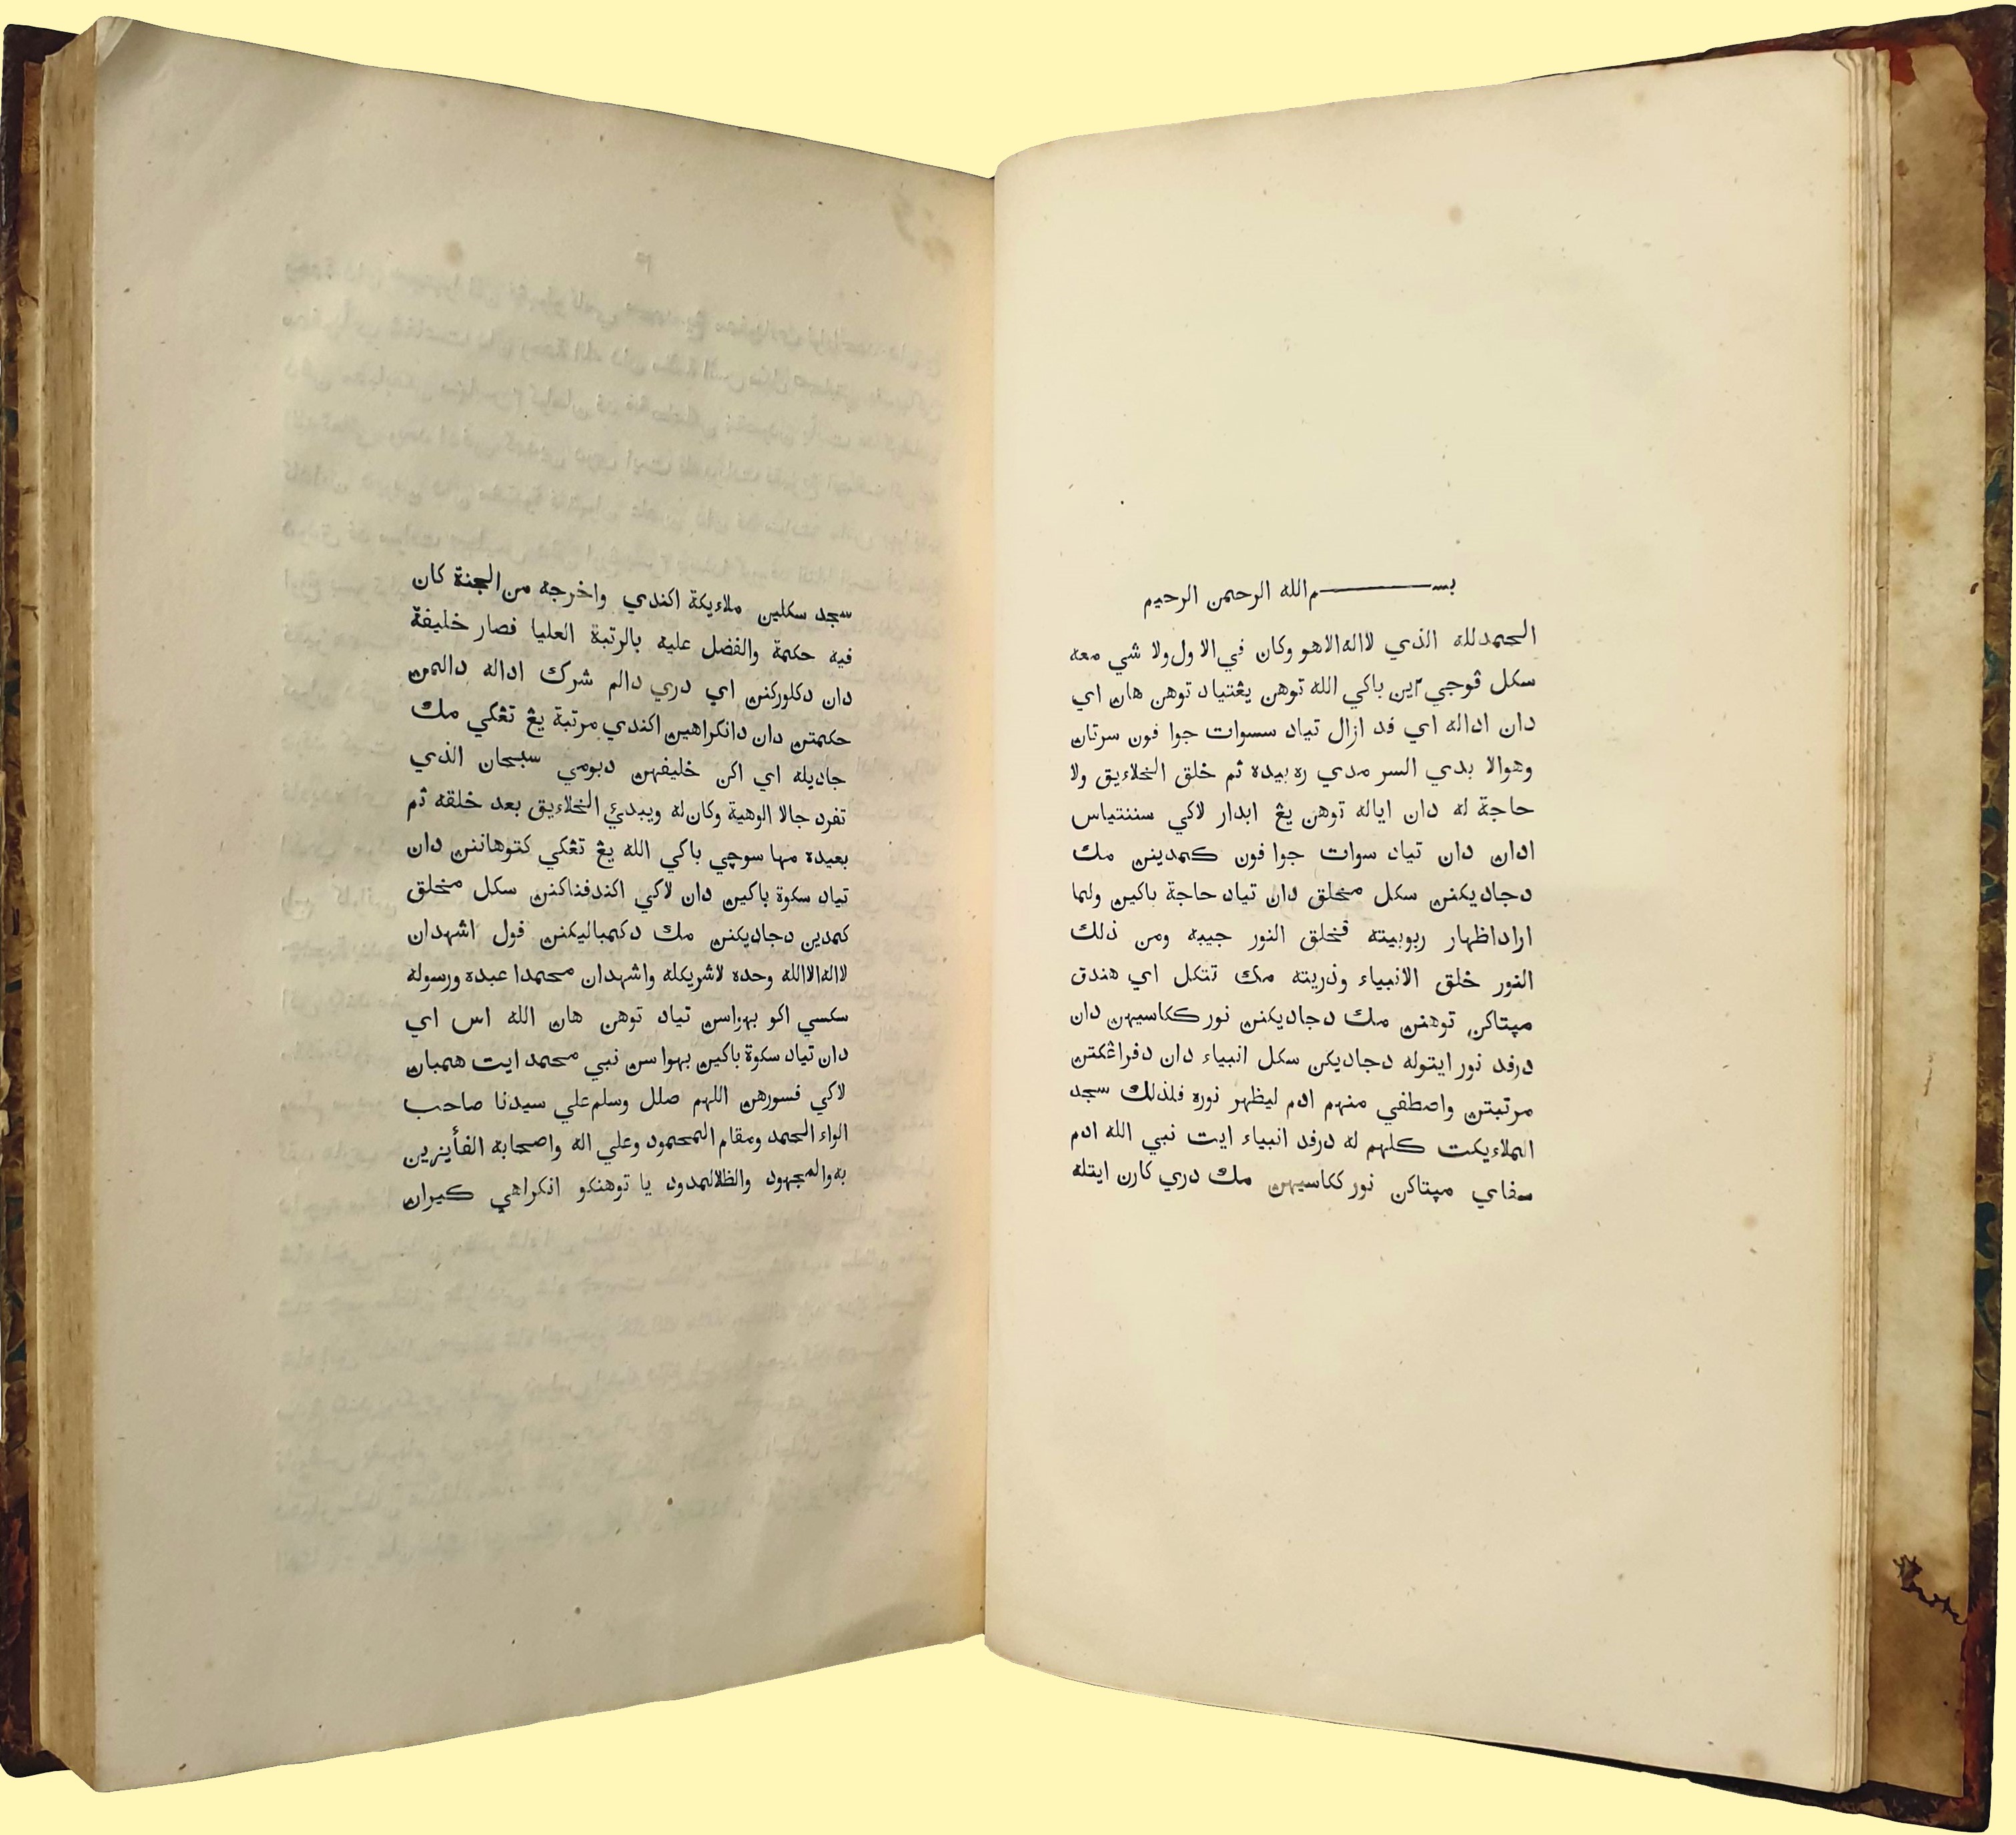 بســـــــم الله الرحمن الرحيم
الحمدلله الذي لااله الاهو وكان في الاول ولا شي معه
سكل ڤوجي٢ين باكي الله توهن يڠتياد توهن هان اي
دان اداله اي فد ازال تياد سسوات جوا فون سرتان
وهوالا بدي السر مدي ره بيده ثم خلق الخلاءيق ولا
حاجة له دان اياله توهن يڠ ابدار لاكي سنتتياس
ادان دان تياد سوات جوا فون كمدينن مك
دجاديكنن سكل مخلق دان تياد حاجة باكين ولما
اراداظهار ربوبيته فخلق النور جيبه ومن ذلك
النور خلق الانبياء وذريته مك تتكل اي هندق
مپتاكن توهنن مك دجاديكنن نور ككاسيهن دان
درفد نور ايتوله دجاديكن سكل انبياء دان دفراڠكتن
مرتبتن واصطفي منهم ادم ليظهر نوره فلذلك سجد
الملاءيكت كلهم له درفد انبياء ايت نبي الله ادم
سفاي مپتاكن نور ككاسيهن مك دري كارن ايتله
سجد سكلين ملاءيكة اكندي واخرجه من الجنة كان
فيه حكمة والفضل عليه بالرتبة العليا فصار خليفة
دان دكلوركنن اي دري دالم شرك اداله دالمن
حكمتن دان دانكراهين اكندي مرتبة يڠ تڠكي مك
جاديله اي اكن خليفهن دبومي سبحان الذي
تفرد جالا الوهية وكان له ويبدئ الخلاءيق بعد خلقه ثم
بعيده مها سوچي باكي الله يڠ تڠكي كتوهاننن دان
تياد سكوة باكين دان لاكي اكندفناكنن سكل مخلق
كمدين دجاديكنن مك دكمباليكنن فول اشهدان
لااله الاالله وحده لاشريكله واشهدان محمدا عبده ورسوله
سكسي اكو بهواسن تياد توهن هان الله اس اي
دان تياد سكوة باكين بهواسن نبي محمد ايت همبان
لاكي فسورهن اللهم صلل وسلم علي سيدنا صاحب
الواء الحمد ومقام المحمود وعلي اله واصحابه الفأيزين
به والمجهود والظلالمدود يا توهنكو انكراهي كيران